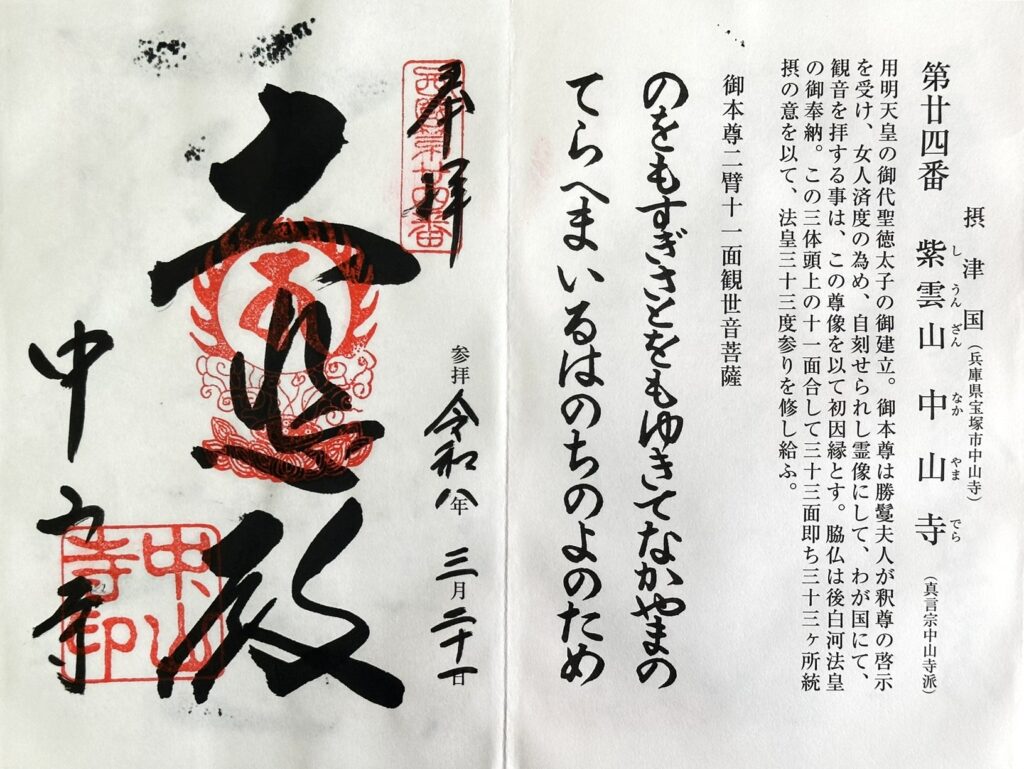 摂津国(兵庫県宝塚市中山寺)
第廿四番 紫雲山中山寺(真言宗中山寺派)
しうんざん なかやまでら
用明天皇の御代聖徳太子の御建立。御本尊は勝鬘夫人が釈尊の啓示
を受け、女人済度の為め、自刻せられし霊像にして、わが国にて、
観音を拝する事は、この尊像を以て初因縁とす。脇仏は後白河法皇
の御奉納。この三体頭上の十一面合して三十三面即ち三十三ヶ所統
摂の意を以て、法皇三十三度参りを修し給ふ。
御本尊二臂十一面観世音菩薩
のをもすぎさとをもゆきてなかやまの
てらへまいるはのちのよのため
奉拝
西国第廿四番
参拝 令和八年 三月 二十一日
大悲殿
中山寺
中山寺印